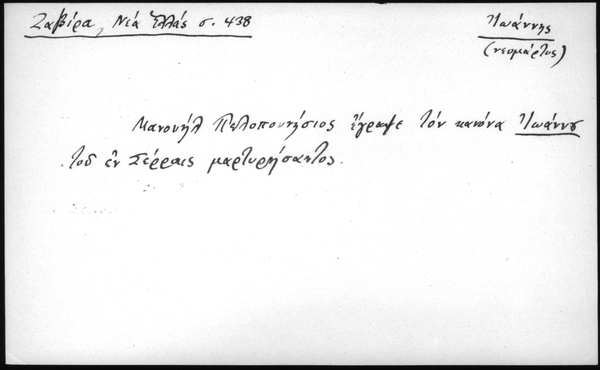 Ζαβίρα, Νέα Ἑλλάς σ. 438
Ἰωάννης
(νεομάρτυς)
Μανουήλ Πελοποννήσιος ἔγραψε τὸν κανόνα Ἰωάννου
τοῦ ἐν Σέρραις μαρτυρήσαντος.